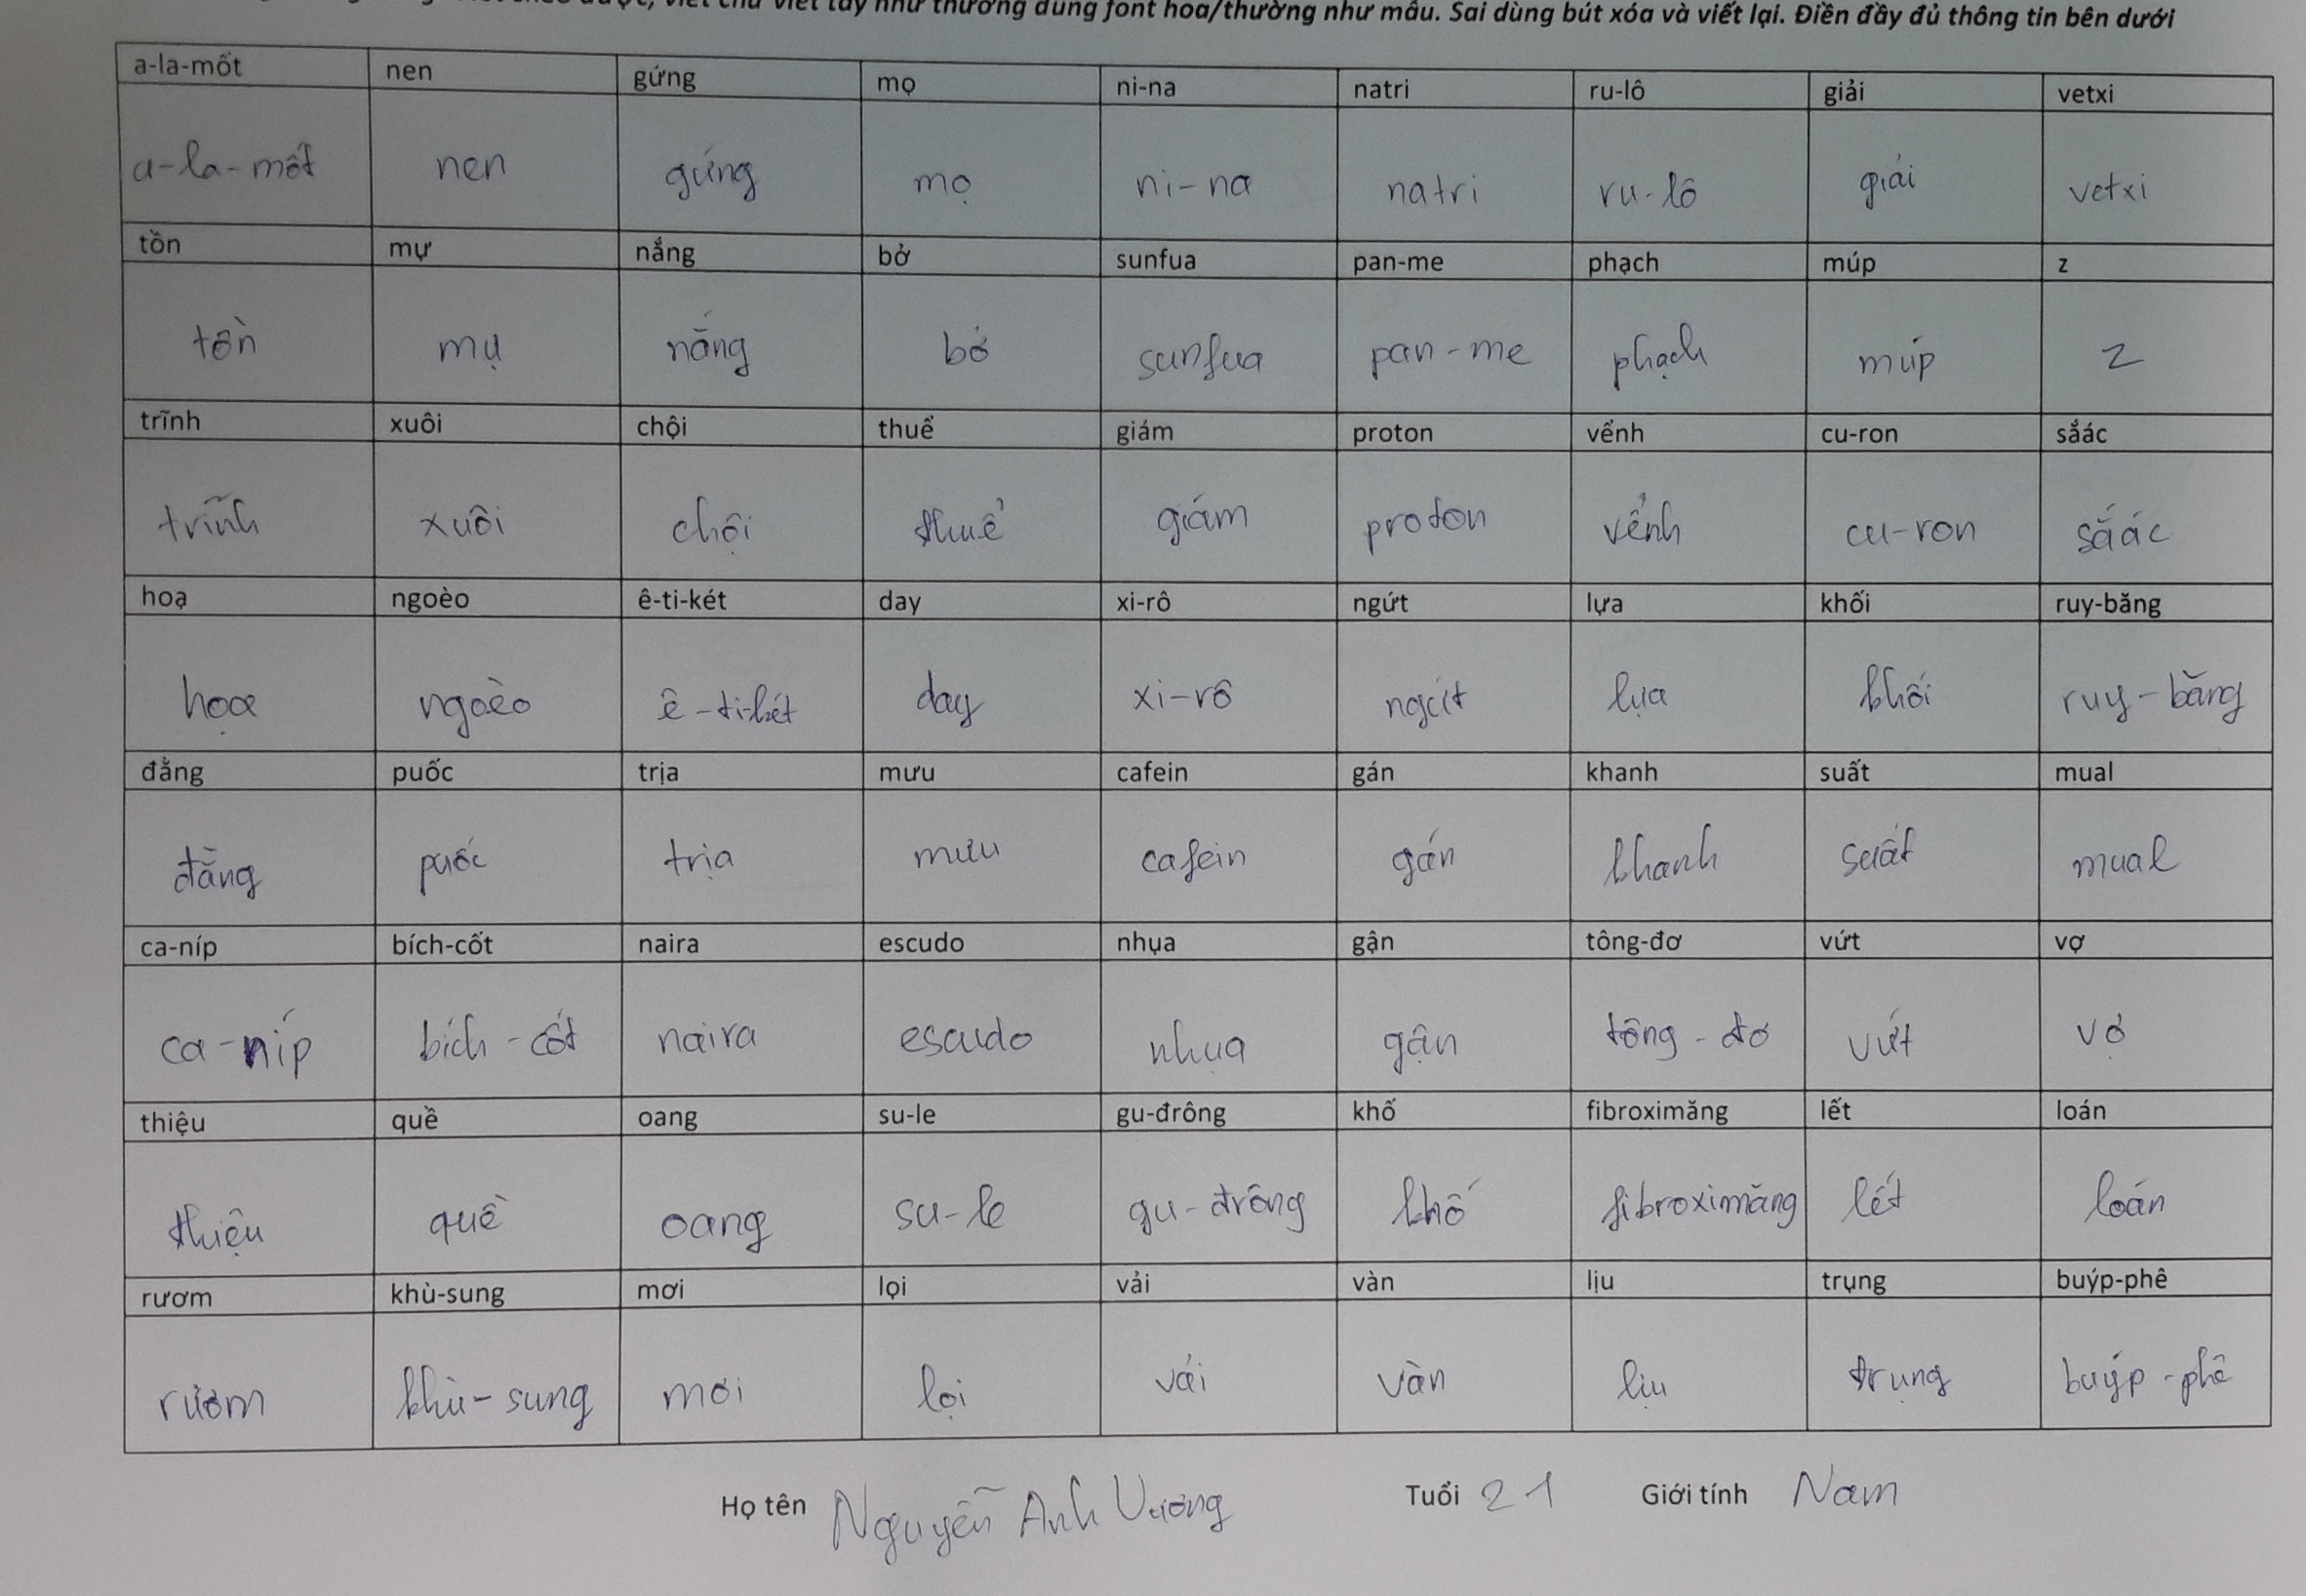 viết chữ viết tay như thường dùng font hoa/thường như mẫu. Sai dùng bút xóa và viết lại. Điền đầy đủ thông tin bên dưới
a-la-mốt nen gứng mọ ni-na natri ru-lô giải vetxi
a-la-mốt nen gứng mọ ni-na natri ru-lô giải vetxi
tồn mự nắng bở sunfua pan-me phạch múp z
tồn mự nắng bở sunfua pan-me phạch múp z
trĩnh xuôi chội thuể giám proton vểnh cu-ron sắác
trĩnh xuôi chội thuể giám proton vểnh cu-ron sắác
hoạ ngoèo ê-ti-két day xi-rô ngứt lựa khối ruy-băng
họa ngoèo ê-ti-két day xi-rô ngứt lựa khối ruy-băng
đằng puốc trịa mưu cafein gán khanh suất mual
đằng puốc trịa mưu cafein gán khanh suất mual
ca-níp bích-cốt naira escudo nhụa gận tông-đơ vứt vợ
ca-níp bích-cốt naira escudo nhụa gận tông-đơ vứt vợ
thiệu quề oang su-le gu-đrông khố fibroximăng lết loán
thiệu quề oang su-le gu-đrông khố fibroximăng lết loán
rươm khù-sung mơi lọi vải vàn lịu trụng buýp-phê
rươm khù-sung mơi lọi vải vàn lịu trụng buýp-phê
Họ tên Nguyễn Anh Vương Tuổi 21 Giới tính Nam